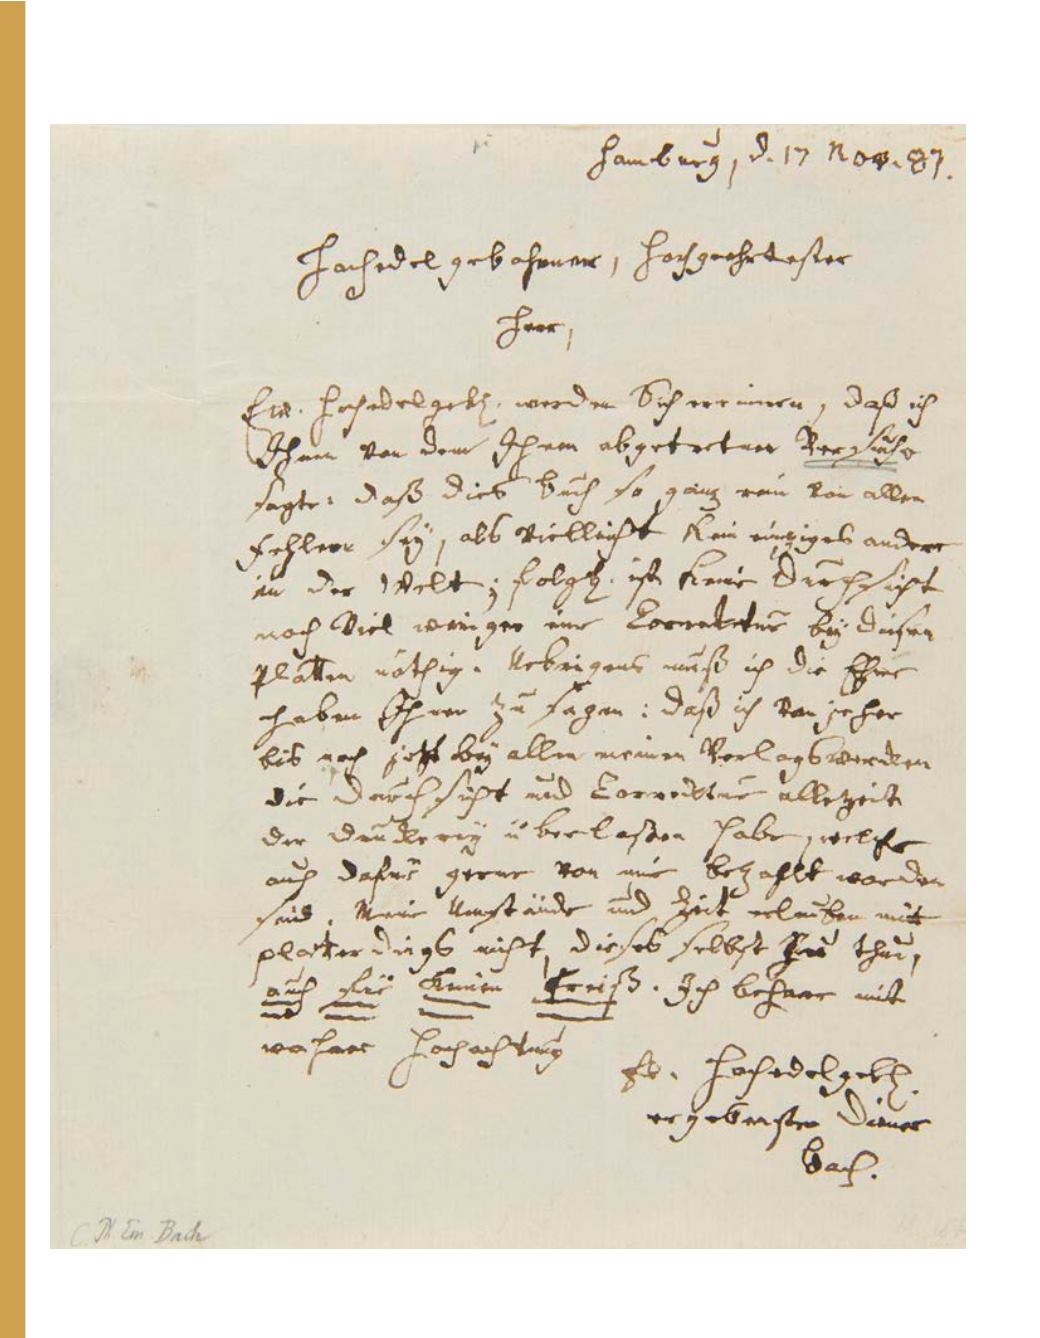 Hamburg, d. 17 Nov. 87.
Hochedelgebohrner, Hochgeehrtester
Herr,
Ew. Hochedelgebh. werden Sich erinnern, daß ich
Ihnen von dem Ihnen abgetretnen Versuche
sagte: daß dies Buch so ganz rein von allen
Fehlern sey, als vielleicht kein einziges andere
in der Welt; folgl. ist keine Durchsicht
noch viel weniger eine Correktur bey diesen
Platten nöthig. Uebrigens muß ich die Ehre
haben Ihnen zu sagen: daß ich von jeher
bis noch jetzt bey allen meinen Verlagswercken
die Durchsicht und Correcktur allezeit
der Druckerey überlaßen habe, welche
auch dafür gerne von mir bezahlt worden
sind. Meine Umstände und Zeit erlauben mir
platterdings nicht, dieses selbst zu thun,
auch für keinen Preiß. Ich beharre mit
wahrer Hochachtung
Ew. Hochedelgebh.
ergebenster Diener
Bach.
C. Ph. Em Bach